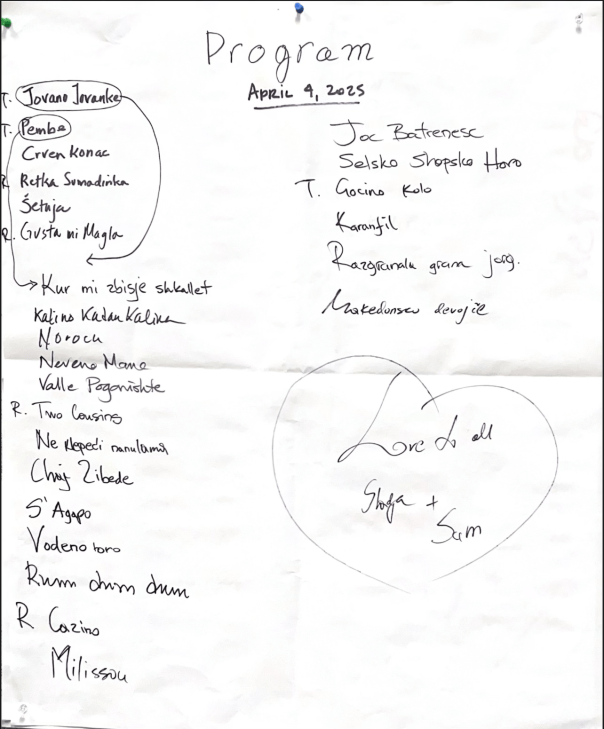 Program
April 4, 2025
T. Jovano Jovanke
T. Pembe
Crven Konac
R. Retka Sumadinka
Šetnja
R. Gusta mi Magla
Kur mi zbisje shkallet
Kalino Kadan Kalino
Norocu
Neveno Mome
Valle Pogonishte
R. Two Cousins
Ne klepeči nanulama
Chaj Zibede
S'Agapo
Vodeno horo
Rum dum dum
R Cazino
Milissou
Joc Batrenesc
Selsko Shopsko Horo
T. Gocino Kolo
Karanfil
Razgranala grana jorg.
Makedonsko devojče
Love to all
+
Sam